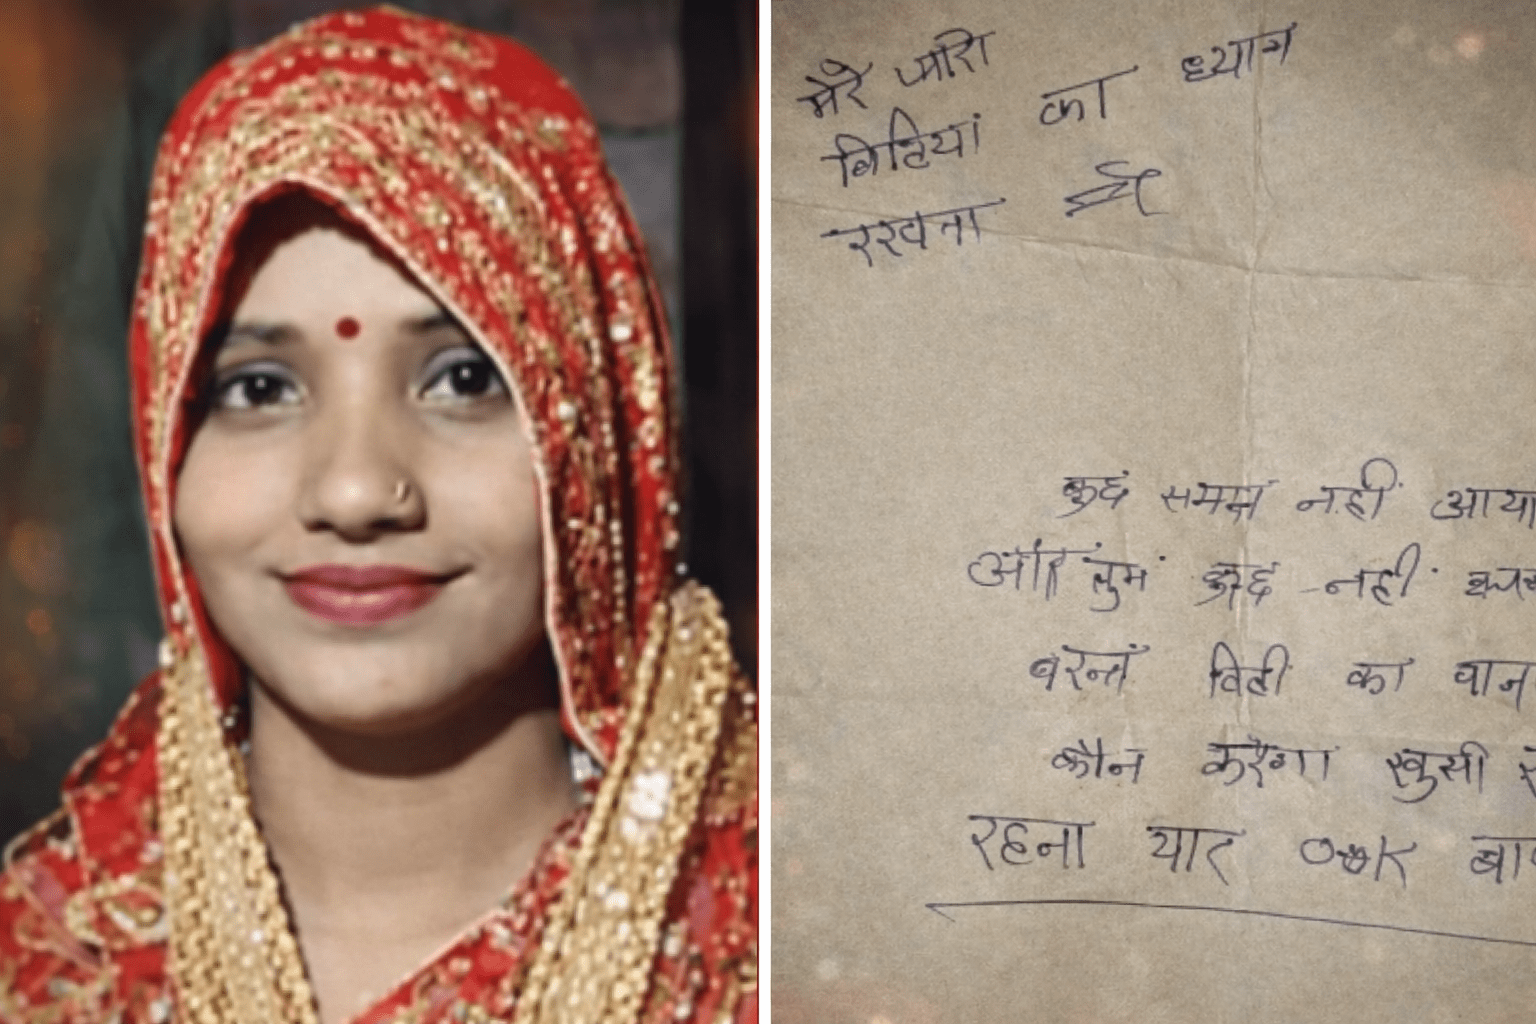 मेरे प्यारी
बिटियां का ध्यान
रखना
कुछ समझ नहीं आया
और तुम कुछ नहीं
वरना बिटी का
कौन करेगा खुसी
रहना यार